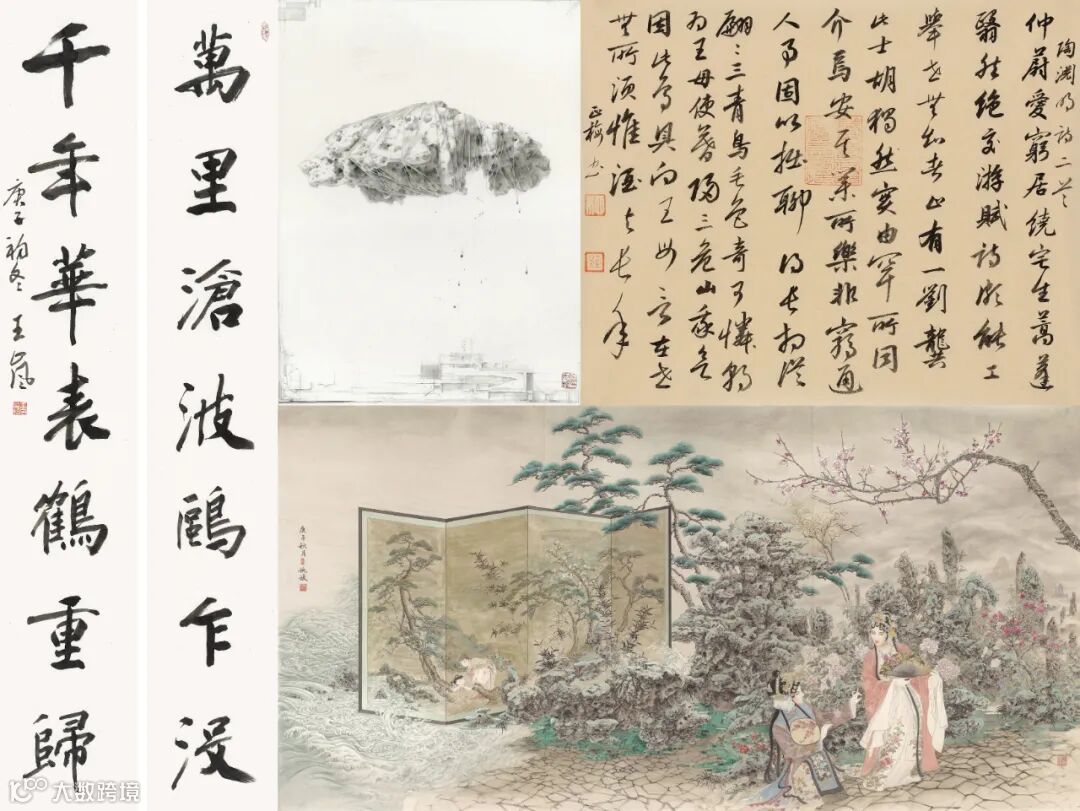 萬里滄波鷗乍没
千年華表鶴重歸
庚子初冬 王嵐
陶渊明诗二首
仲蔚愛窮居繞宅生蒿蓬
翳然絶交游賦詩頗能工
舉世無知者止有一劉龔
此士胡獨然實由罕所同
介焉安其業所樂非窮通
人事固以拙聊得長相從
翩〻三青鳥毛色奇可憐朝
為王母使暮歸三危山我欲
因此鳥具向王母言在世
無所須惟酒与長年
正梅书
庚子秋月
大数跨境